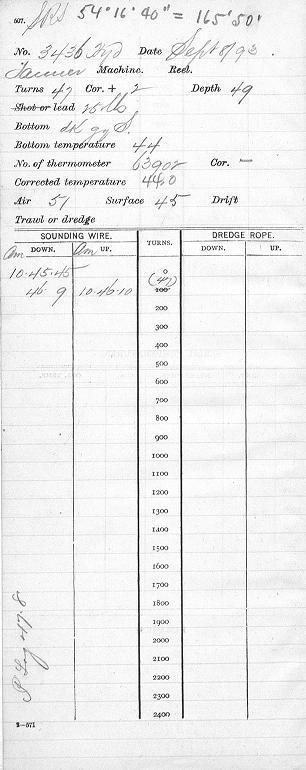 507. SRS 54° 16' 40" = 165° 50'
No. 3436 Hyd Date Sept 9/93.
Tanner Machine. Reel.
Turns 47 Cor. + 2 Depth 49
Shot or lead 25 lb
Bottom dk gy S.
Bottom temperature 44
No. of thermometer 63902 Cor. —
Corrected temperature 44.0
Air 51 Surface 45 Drift
Trawl or dredge
SOUNDING WIRE. TURNS. DREDGE ROPE.
am DOWN. am UP. DOWN. UP.
10-45-45 0
46 9 10-46-10 (47) 100
200
300
400
500
600
700
800
900
1000
1100
1200
1300
1400
1500
1600
1700
1800
1900
2000
2100
2200
2300
2400
P Log 47.8
2—571